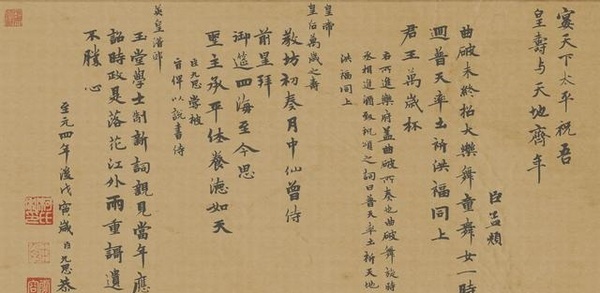 宴天下太平祝吾
皇壽与天地齊年
臣孟頫
曲破未終招大樂舞童舞女一時
迴普天率土祈洪福同上
君王萬歲杯
右所進樂府蓋曲破所奏也曲破舞旋時
丞相進酒致祝頌之詞曰普天率土祈天地
洪福同上
皇帝
皇后萬歲之壽
教坊初奏月中仙曾侍
前星拜
御筵四海至今思
聖主承平休養德如天
臣九思嘗被
旨俾以說書侍
英皇潛邸
玉堂學士制新詞親見當年應
詔時政是落花江外雨重遺
不勝心
至元四年戊寅歲臣九思恭